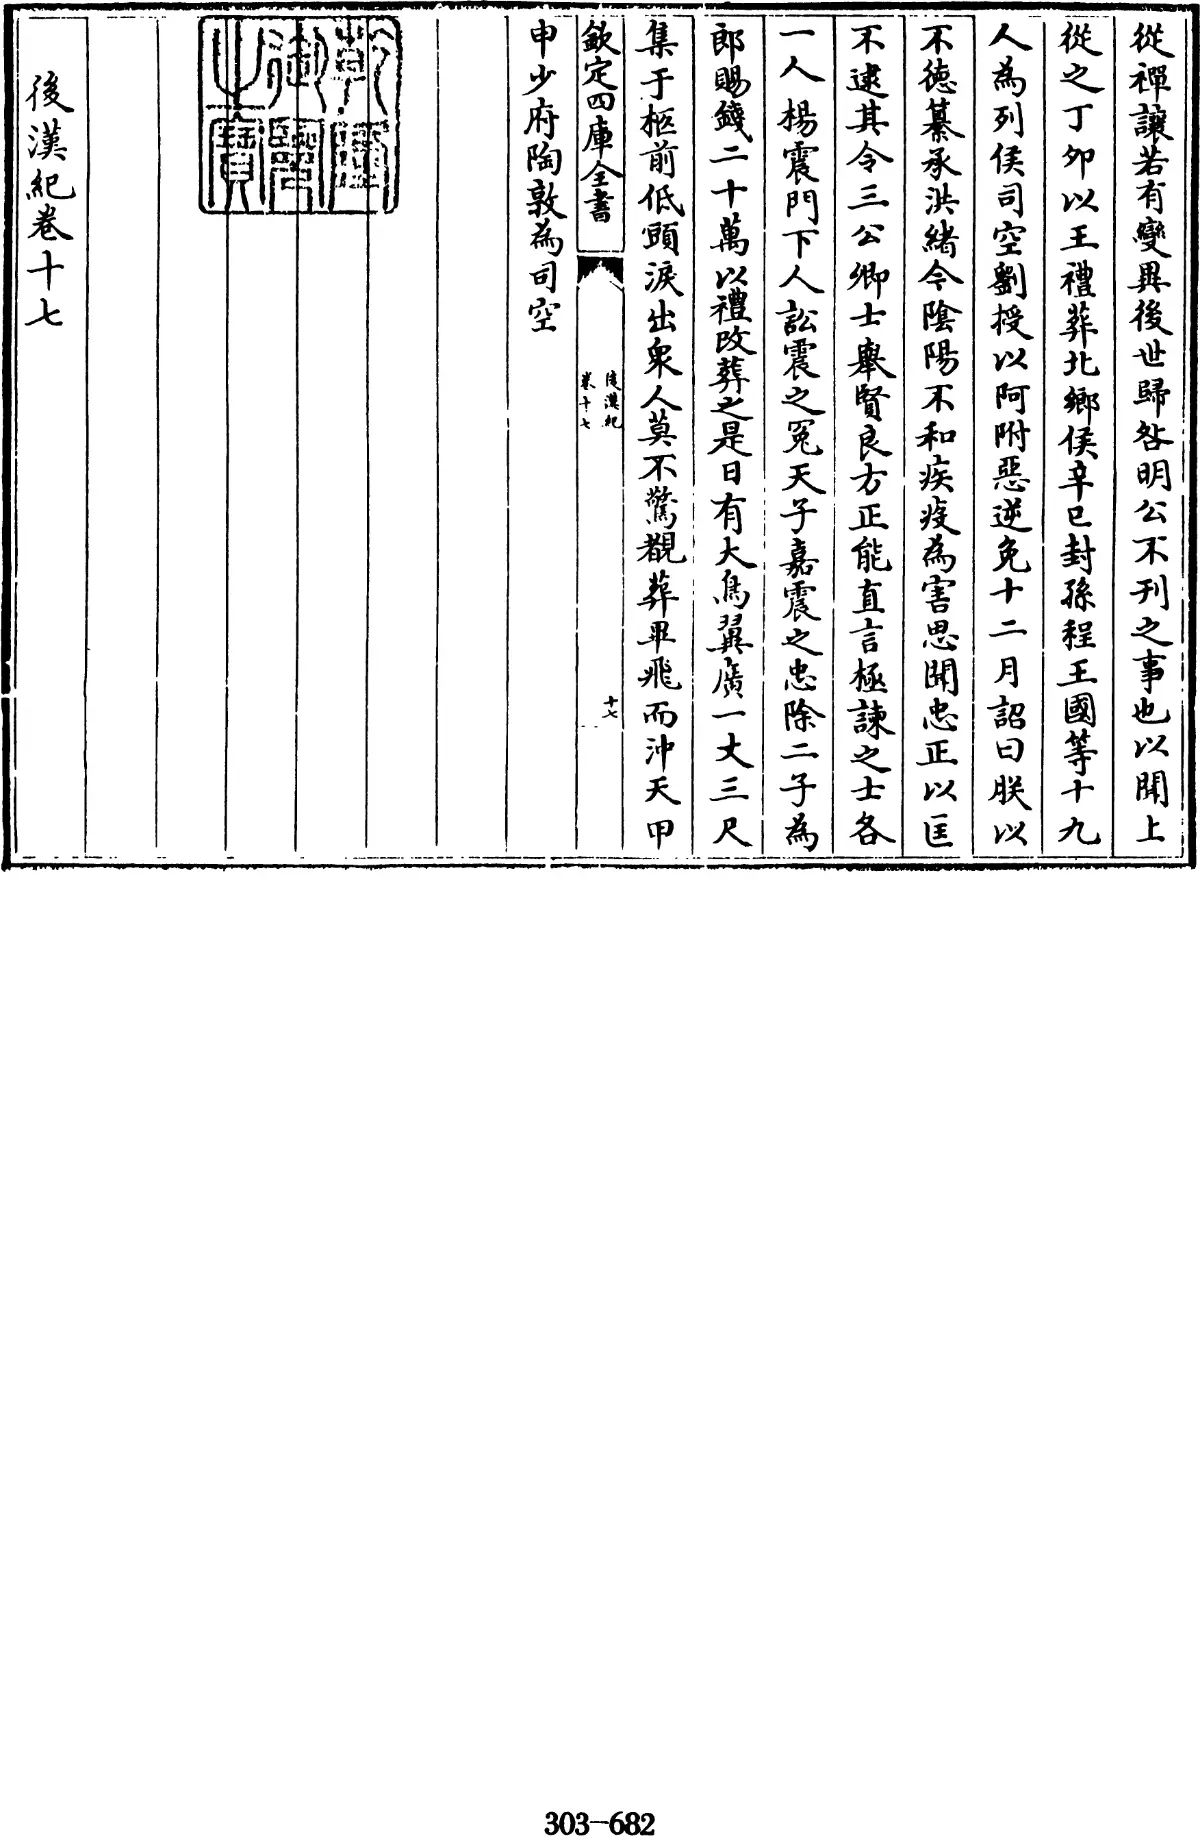 從禪讓若有變異後世歸咎明公不刋之事也以聞上
從之丁卯以王禮葬北鄉侯辛巳封孫程王國等十九
人為列侯司空劉授以阿附惡逆免十二月詔曰朕以
不德纂承洪緒令陰陽不和疾疫為害思聞忠正以匡
不逮其令三公卿士舉賢良方正能直言極諫之士各
一人楊震門下人訟震之冤天子嘉震之忠除二子為
郎賜錢二十萬以禮改葬之是日有大鳥翼廣一丈三尺
集于柩前低頭淚出衆人莫不驚覩葬畢飛而沖天甲
欽定四庫全書
後漢紀
卷十七
十七
申少府陶敦為司空
後漢紀卷十七
303-682